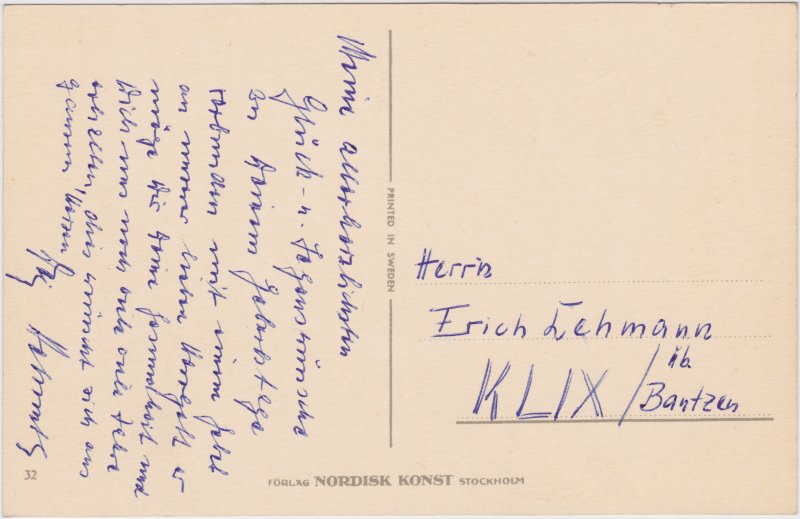 Meine allerherzlichsten
Glück- u. Segenswünsche
zu Deinem Geburtstage
verbunden mit einem Gebet
an unsern lieben Herrgott er
möge Dir Deine Gesundheit und
Dich uns noch viele Jahre
erhalten, dies wünscht Dir aus
ganzem Herzen
PRINTED IN SWEDEN
Herrn
Erich Lehmann
KLIX / üb
Bautzen
32
FÖRLAG NORDISK KONST STOCKHOLM